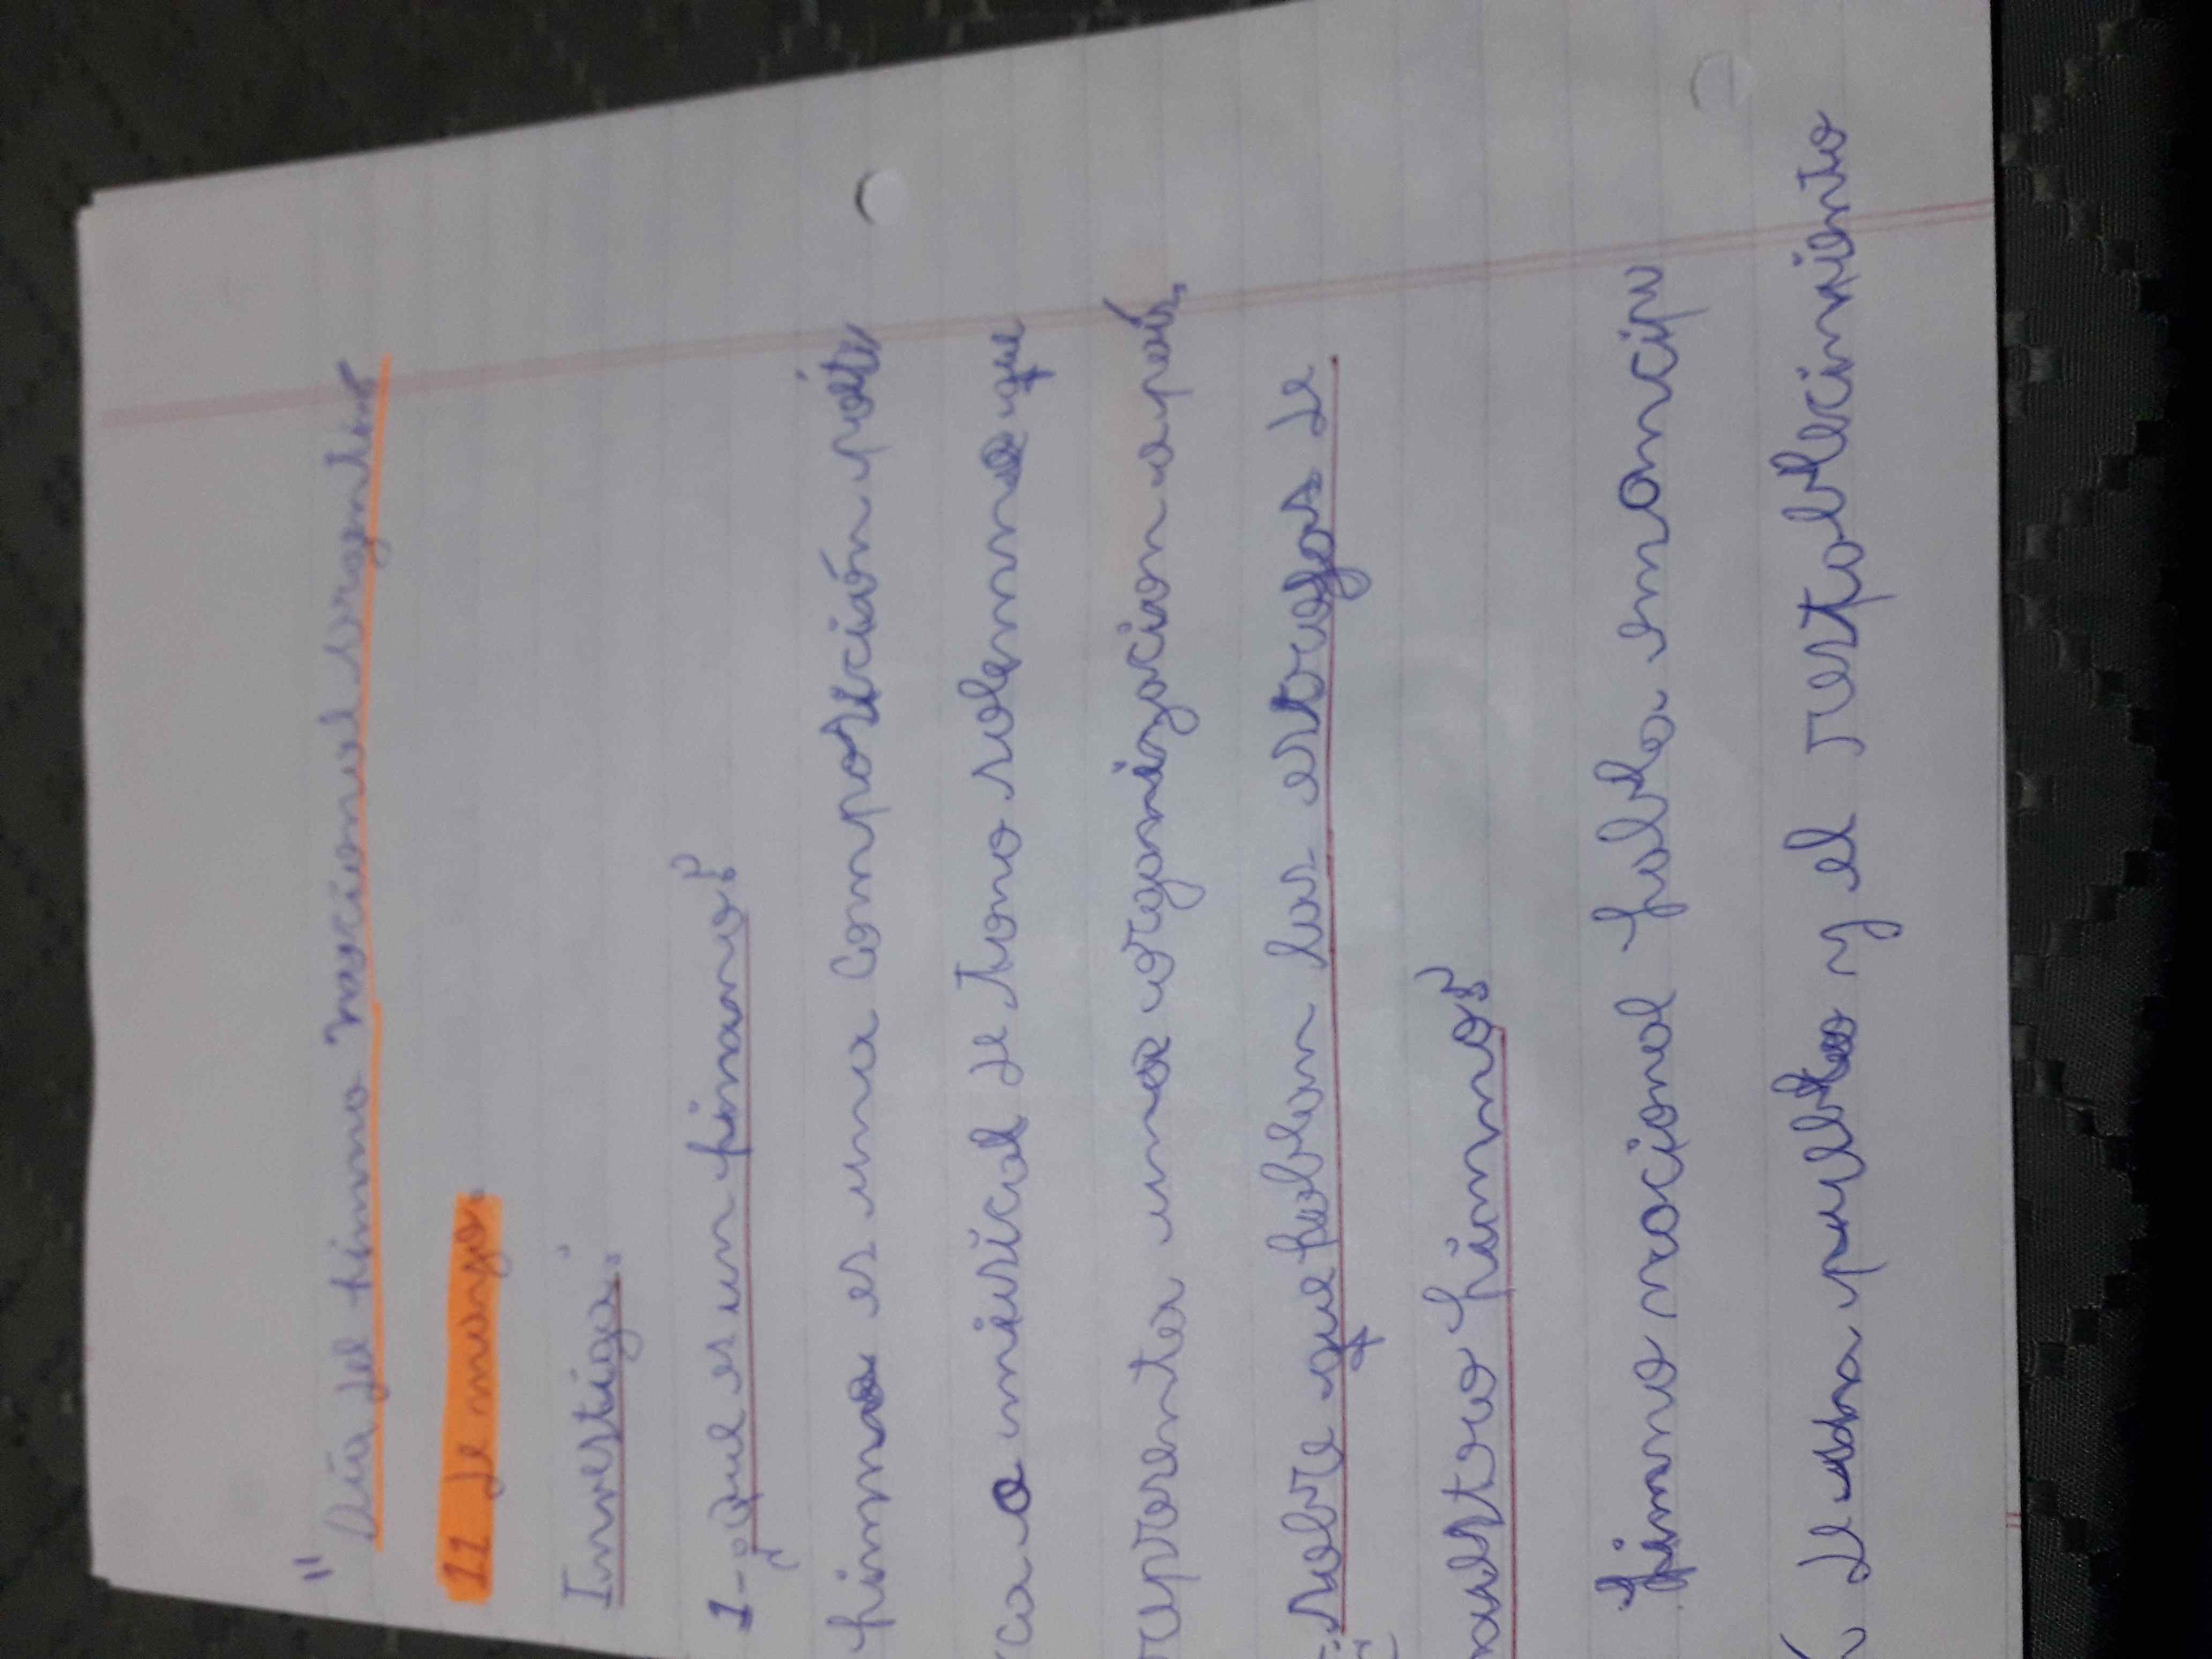 "Día del himno nacional argentino
11 de mayo.
Investiga:
1-¿Qué es un himno?
himno es una composición poéti
ca o musical de tono solemne que
representa una organizacion o país.
¿Sobre que hablan las estrofas de
nuestro himno?
himno nacional habla emancipa
de una pueblo y el restablecimiento